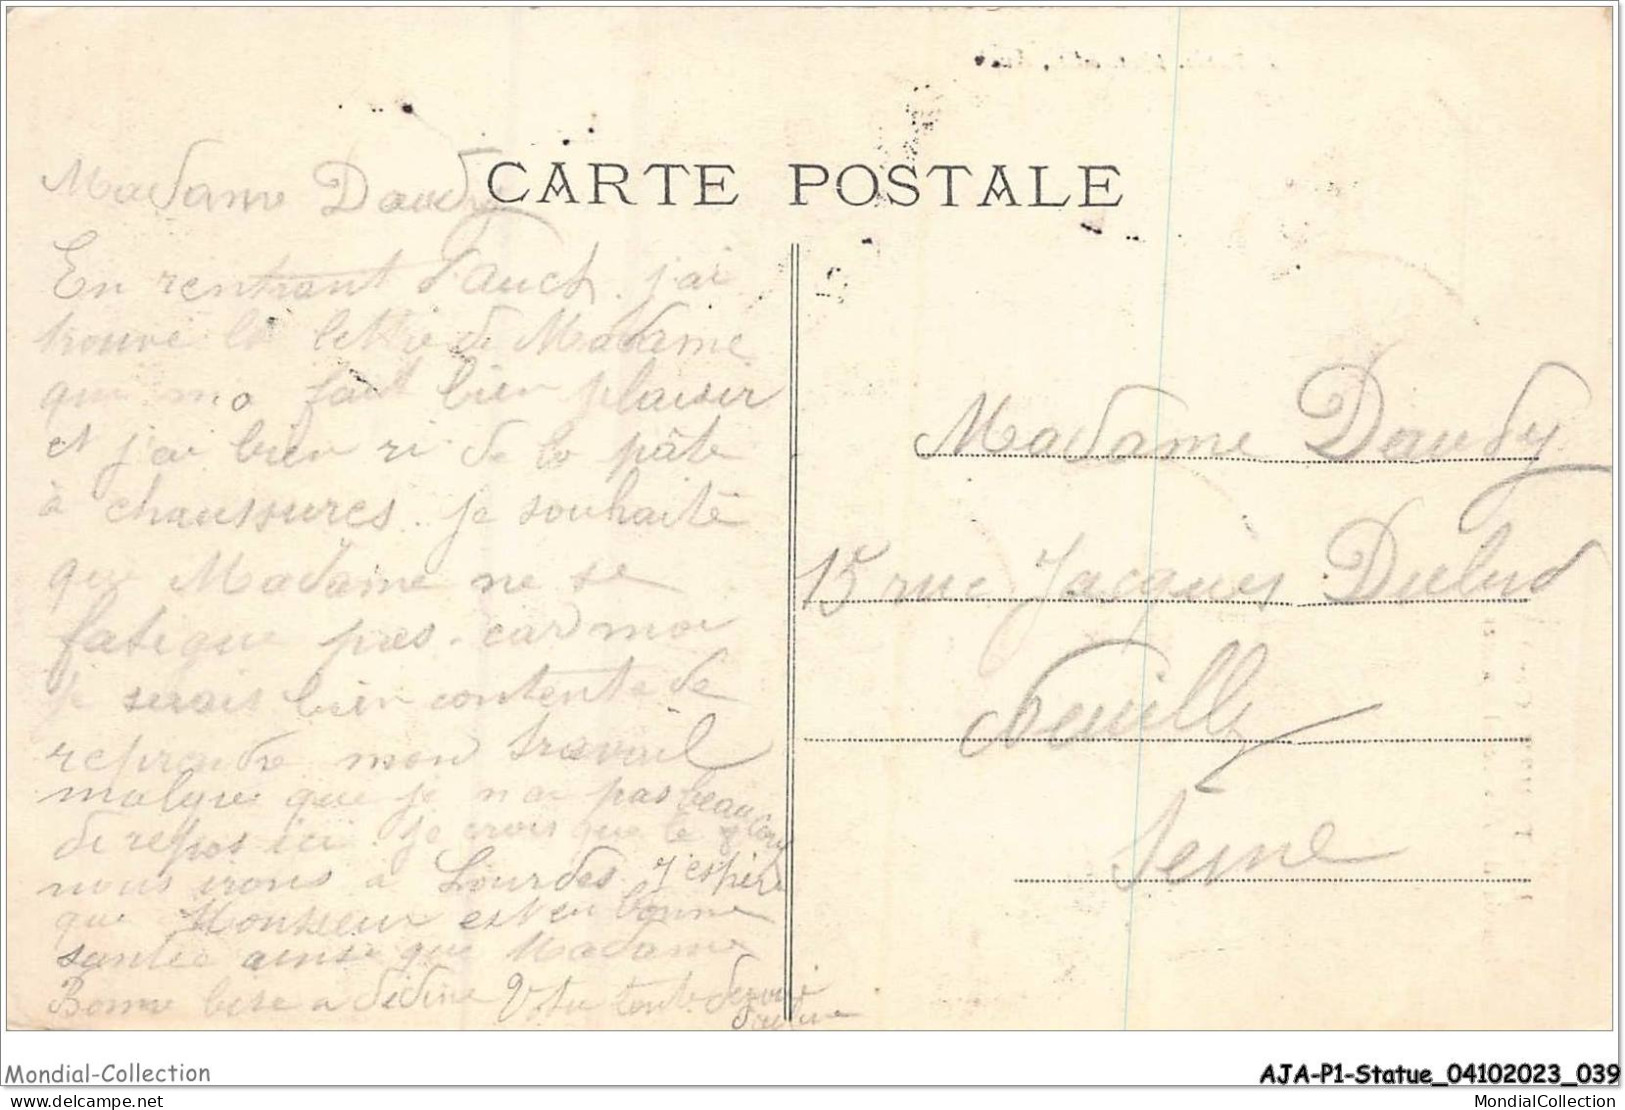 CARTE POSTALE
Madame Daudy
En rentrant d'Auch j'ai
trouvé la lettre de Madame
qui m'a fait bien plaisir
et j'ai bien ri de la pâte
à chaussures. je souhaite
que Madame ne se
fatigue pas. car moi
je serais bien contente de
reprandre mon travail
malgré que je n'ai pas beau
de repos ici je crois que le
nous irons a Lourdes. J'espère
que Monsieur est en bonne
santée ainsi que Madame
Bonne bise a dédine Votre toute dévoué
Madame Daudy
15 rue Jacques Dulud
Neuilly
Seine
Mondial-Collection
AJA-P1-Statue_04102023_039
delcampe.net
MondialCollection